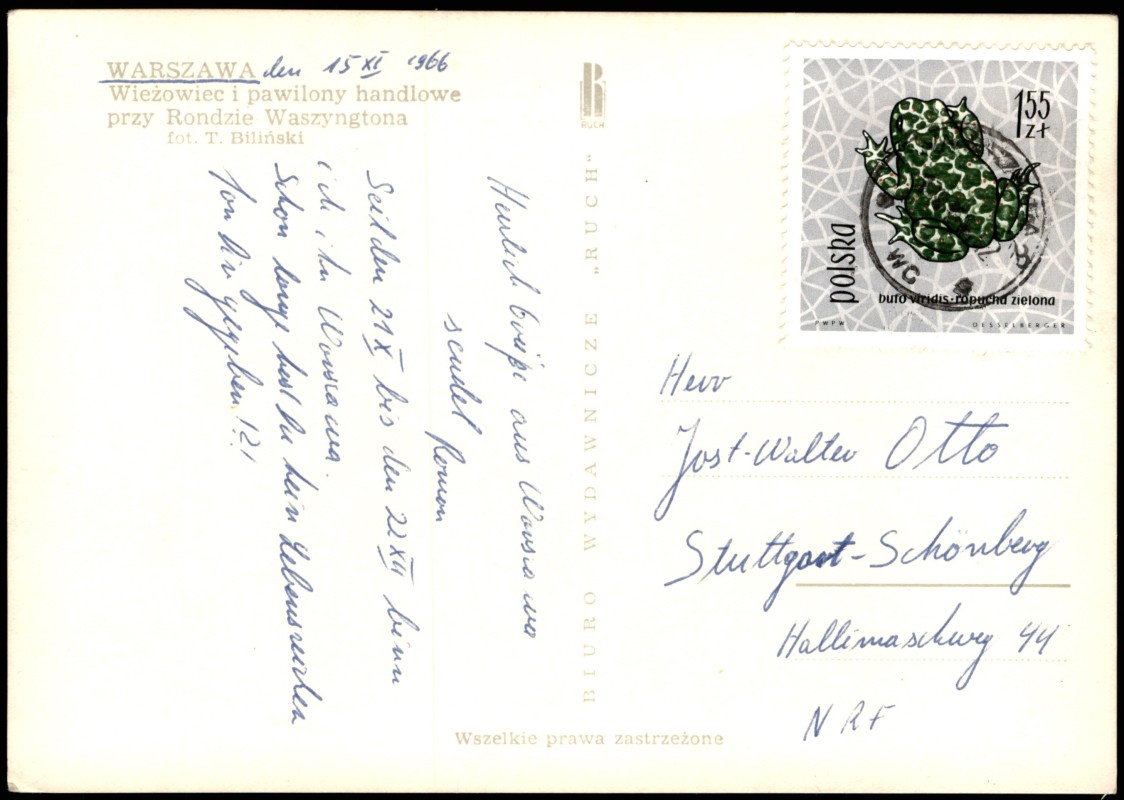 WARSZAWA den 15 XI 1966
Wieżowiec i pawilony handlowe
przy Rondzie Waszyngtona
fot. T. Biliński
Herzlich Grüße aus Warszawa
sendet Roman
Seit den 21 X bis den 22 XII binn
ich in Warszawa.
Schon lange hast du kein Lebenszeichen
von dir gegeben!?!
RUCH
BIURO WYDAWNICZE "RUCH"
Wszelkie prawa zastrzeżone
1,55
zł
polska
bufo viridis-ropucha zielona
PWPW
DESSELBERGER
Herr
Jost-Walter Otto
Stuttgart-Schönberg
Hallimaschweg 44
NRF